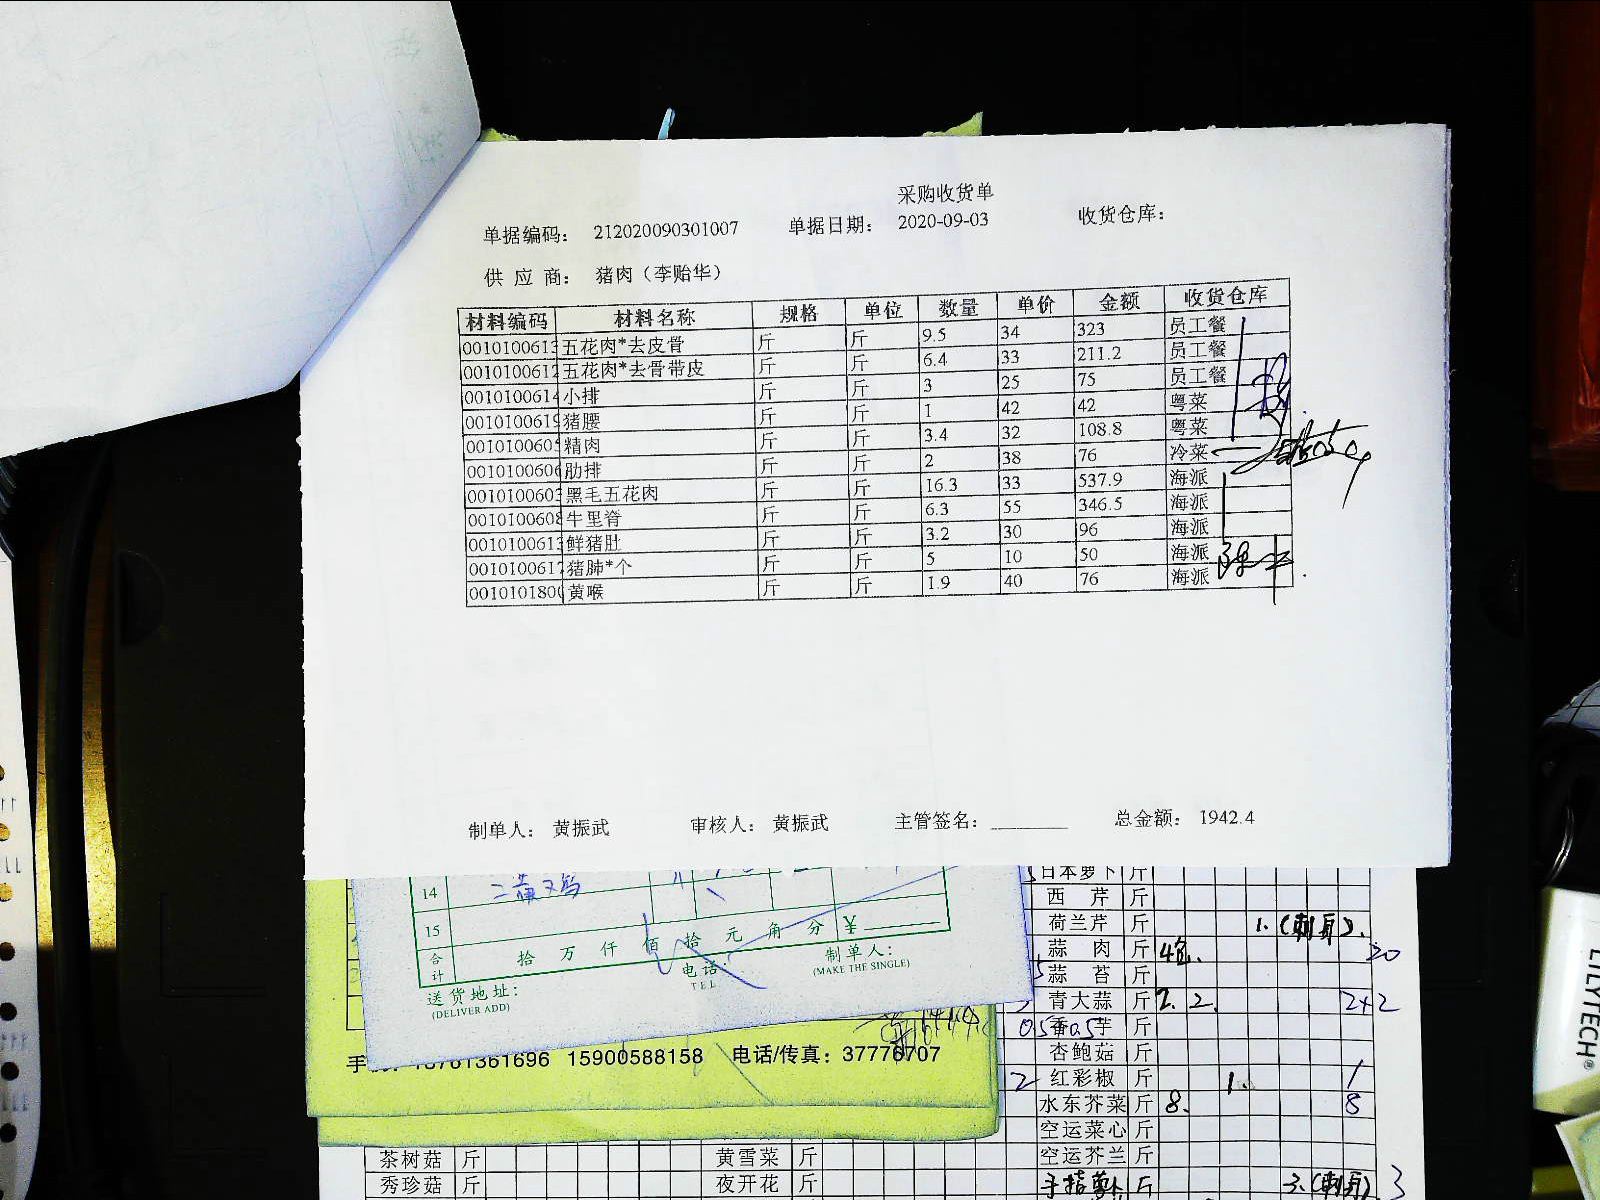 采购收货单
单据编码： 212020090301007 单据日期： 2020-09-03 收货仓库：
供 应 商： 猪肉（李贻华）
材料编码 材料名称 规格 单位 数量 单价 金额 收货仓库
0010100613 五花肉*去皮骨 斤 斤 9.5 34 323 员工餐
0010100612 五花肉*去骨带皮 斤 斤 6.4 33 211.2 员工餐
0010100614 小排 斤 斤 3 25 75 员工餐
0010100619 猪腰 斤 斤 1 42 42 粤菜
001010060 精肉 斤 斤 3.4 32 108.8 粤菜
0010100606 肋排 斤 斤 2 38 76 冷菜
001010060 黑毛五花肉 斤 斤 16.3 33 537.9 海派
0010100608 牛里脊 斤 斤 6.3 55 346.5 海派
001010061 鲜猪肚 斤 斤 3.2 30 96 海派
0010100617 猪肺*个 斤 斤 5 10 50 海派
001010180 黄喉 斤 斤 1.9 40 76 海派
制单人： 黄振武 审核人： 黄振武 主管签名： 总金额： 1942.4
14
15
合计 拾 万 仟 佰 拾 元 角 分 ¥
送货地址： 电话： 制单人：
(DELIVER ADD) TEL (MAKE THE SINGLE)
15900588158 电话/传真：37776707
日本萝卜 斤
西 芹 斤
荷兰芹 斤 1.(刺身).
蒜 肉 斤 20
蒜 苔 斤
青大蒜 斤 2. 2. 2+2
香 芋 斤
杏鲍菇 斤
2 红彩椒 斤 1. 1
水东芥菜 斤 8. 8
空运菜心 斤
茶树菇 斤 黄雪菜 斤 空运芥兰 斤
秀珍菇 斤 夜开花 斤 手指萝卜 斤 3.(刺身) 3
LILYTECH®